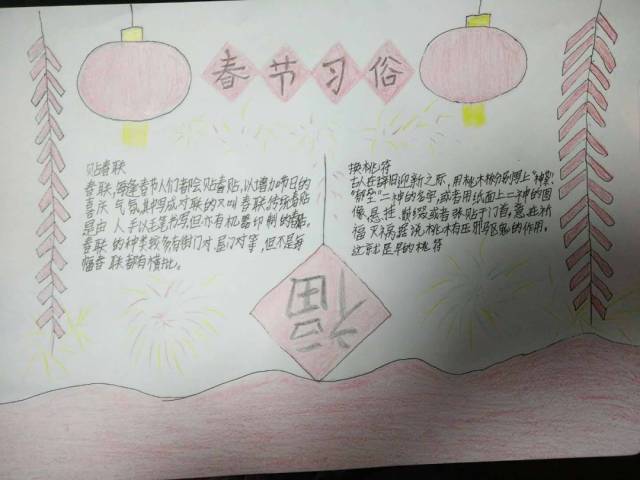 春节习俗
贴春联
春联,每逢春节人们都会贴春贴,以增加节日的
喜庆气氛,其写成对联的又叫春联,传统春贴
是由人手以毛书写,但亦有机器印制的春贴。
春联的种类较多有街门对、屋门对等,但不是每
幅春联都有横批。
换桃符
古人在辞旧迎新之际,用桃木板分别写上"神荼"、
"郁垒"二神的名字,或者用纸画上二神的图
像,悬挂、或者张贴于门首,意在祈
福灭祸,据说桃木有压邪驱鬼的作用。
这就是早的桃符
福